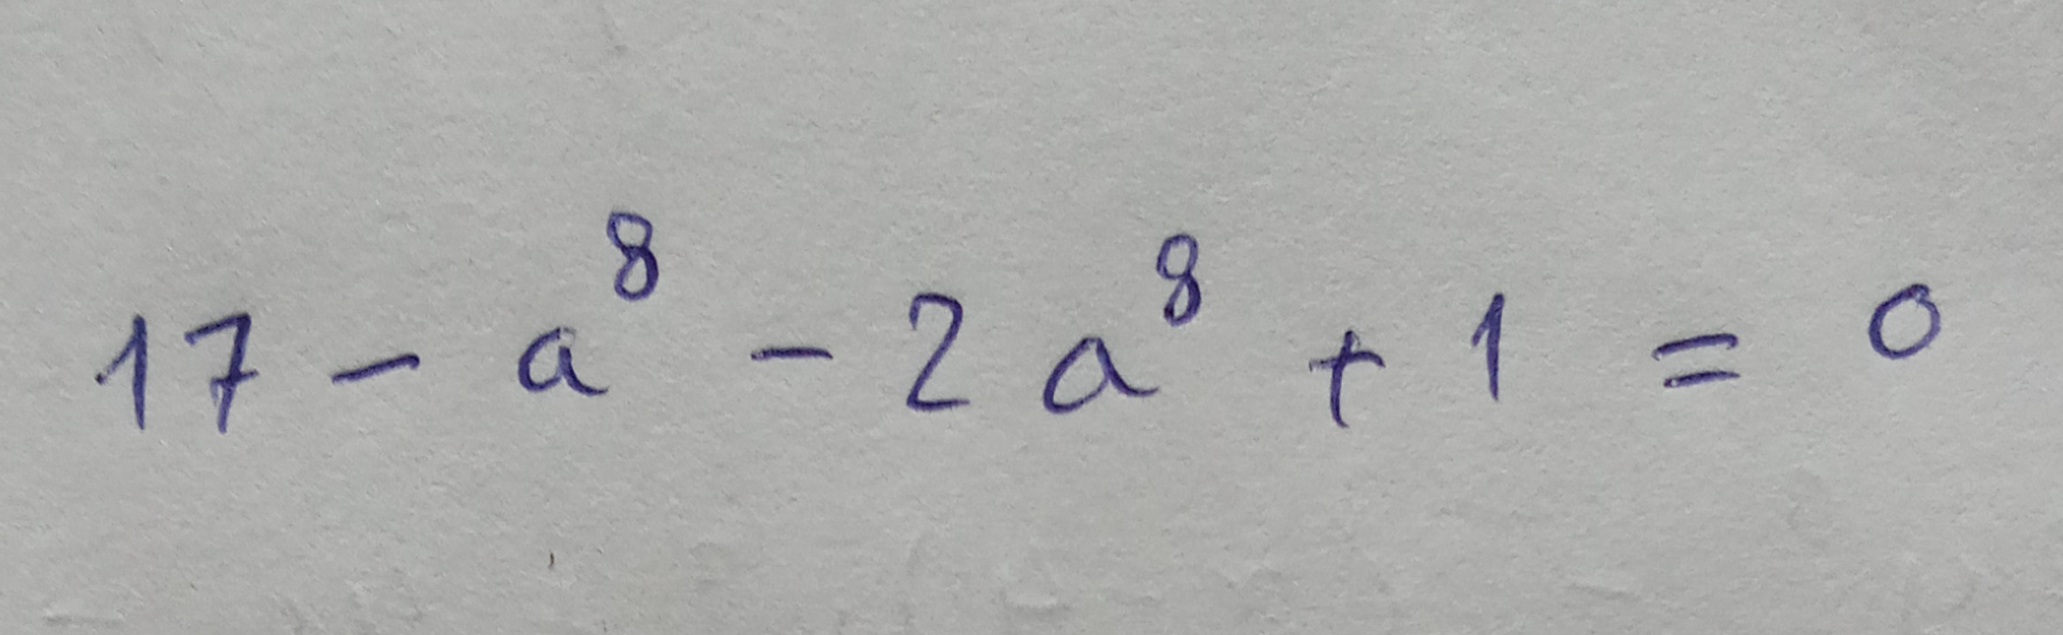 17 - a⁸ - 2a⁸ + 1 = 0